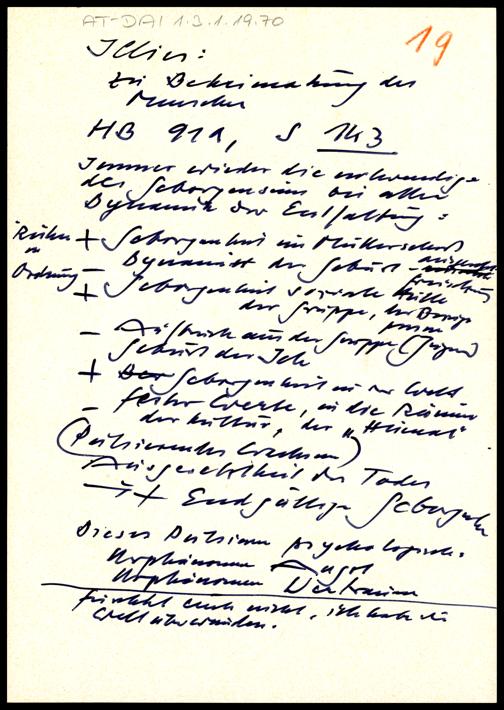 AT-DAI 1.3.1.19.70
19
Illies:
Zur Beheimatung des
Menschen
HB 91a, S 143
Immer wieder die notwendige
des Geborgenseins bei aller
Dynamik der Entfaltung:
Ruhe
Ordnung
+ Geborgenheit im Mutterschoß
- Dynamik der Geburt -
+ Geborgenheit soziale Hülle
der Gruppe, der Bezugs
person
- Aufbruch aus der Gruppe (Jugend)
Geburt des Ich
+ Geborgenheit in der Welt
fester Werte, in die Räume
der Kultur, der „Heimat"
(Pulsierendes Wachsen)
- Ausgesetztheit des Todes
→ + Endgültige Geborgenheit
Dieses Pulsieren psychologisch:
Urphänomen Angst
Urphänomen Vertrauen
Fürchtet euch nicht, ich habe die
Welt überwunden.